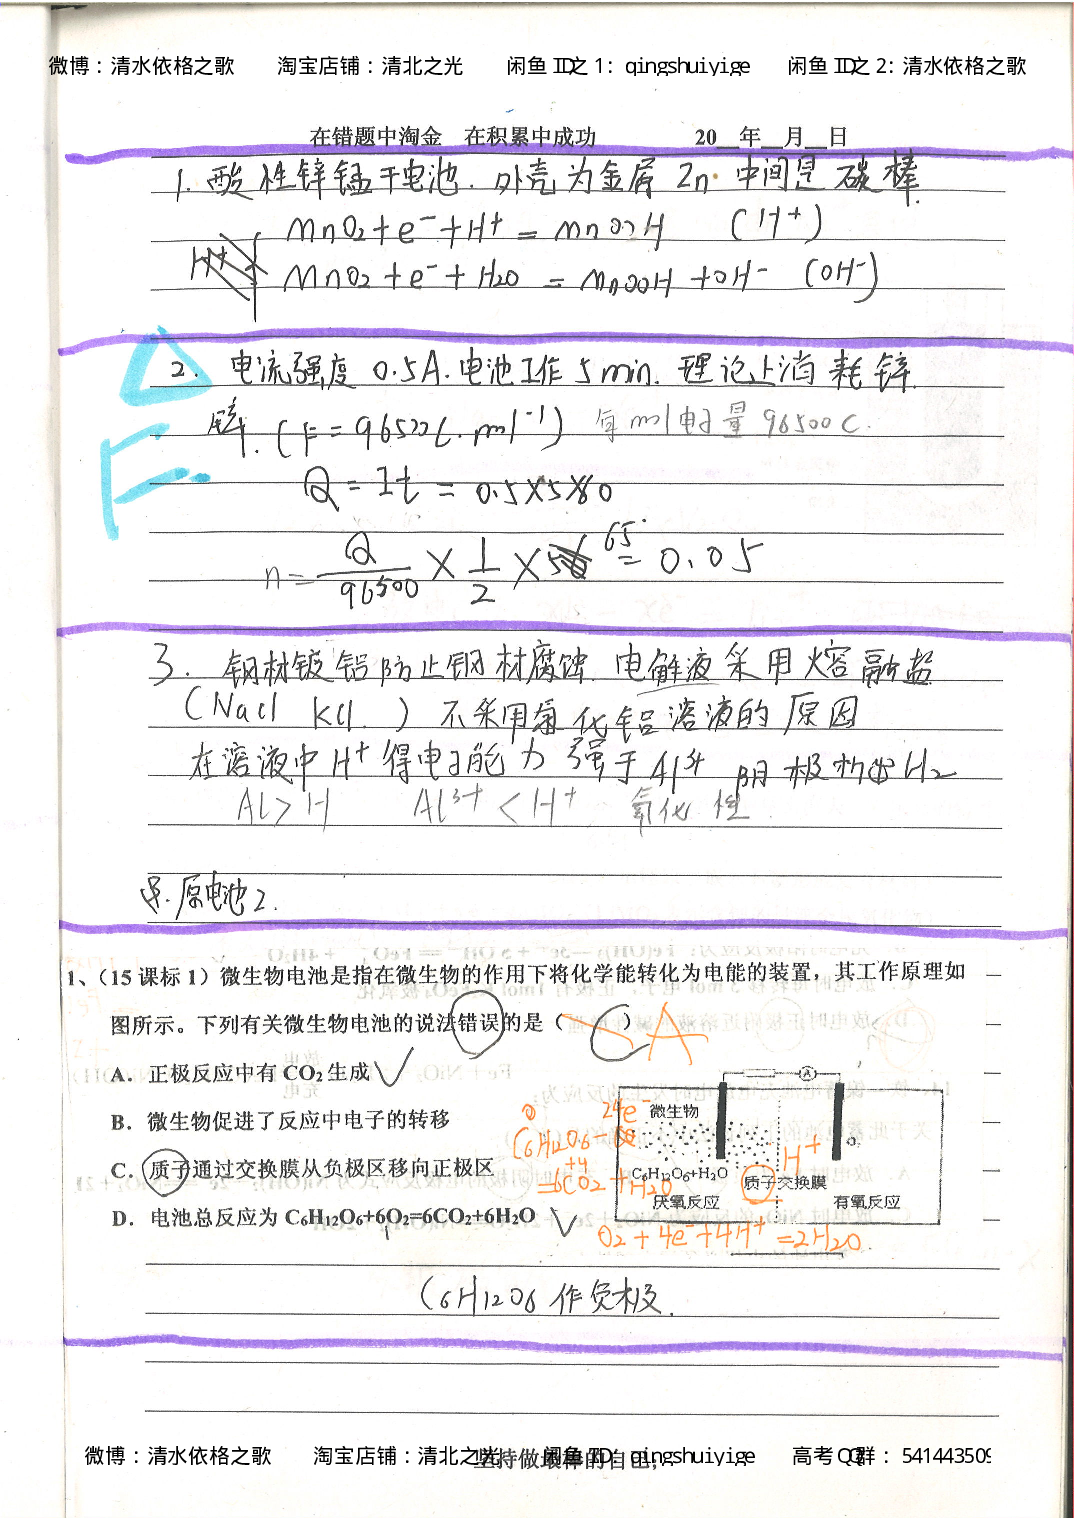 微博：清水依格之歌 淘宝店铺：清北之光 闲鱼 ID 之 1：qingshuiyige 闲鱼 ID 之 2：清水依格之歌
在错题中淘金 在积累中成功 20__年__月__日
1. 酸性锌锰干电池. 外壳为金属 Zn. 中间是碳棒.
MnO2+e⁻+H⁺ = MnOOH (H⁺)
H⁺
MnO2+e⁻+H2O = MnOOH+OH⁻ (OH⁻)
2. 电流强度 0.5A. 电池工作 5min. 理论上消耗锌
锌. (F=96500C·mol⁻¹) 每mol电子量 96500C.
F
Q = It = 0.5×5×60
n= Q/96500 × 1/2 × 65 = 0.05
3. 钢材镀铝防止钢材腐蚀. 电解液采用熔融盐
(NaCl KCl.) 不采用氯化铝溶液的原因
在溶液中H⁺得电子能力强于Al³⁺ 阴极析出H2
Al>H Al³⁺<H⁺ 氧化性.
原电池2.
1、（15 课标 1）微生物电池是指在微生物的作用下将化学能转化为电能的装置，其工作原理如
图所示。下列有关微生物电池的说法错误的是（ ） A
A．正极反应中有 CO₂ 生成 ✓
B．微生物促进了反应中电子的转移
C．质子通过交换膜从负极区移向正极区
D．电池总反应为 C₆H₁₂O₆+6O₂=6CO₂+6H₂O
A
微生物
O₂
C₆H₁₂O₆+H₂O
质子交换膜
厌氧反应
有氧反应
0 24e⁻
C6H12O6
+4
=6CO2+H2O
H⁺
O2+4e⁻+4H⁺=2H2O
C6H12O6 作负极.
微博：清水依格之歌 淘宝店铺：清北之光 闲鱼 ID：qingshuiyige 高考 QQ 群：541443509
坚持做最棒的自己，